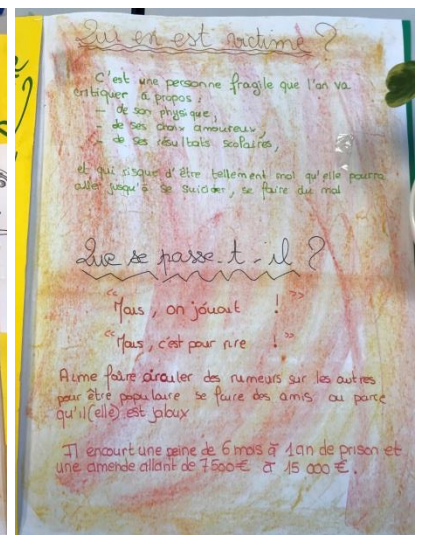 Qui en est victime ?
C'est une personne fragile que l'on va
critiquer à propos :
- de son physique,
- de ses choix amoureux,
- de ses résultats scolaires,
et qui risque d'être tellement mal qu'elle pourra
aller jusqu'à se suicider, se faire du mal
Que se passe-t-il ?
"Mais, on jouait ! "
"Mais, c'est pour rire ! "
Aime faire circuler des rumeurs sur les autres
pour être populaire se faire des amis ou parce
qu'il(elle) est jaloux
Il encourt une peine de 6 mois à 1 an de prison et
une amende allant de 7500€ à 15 000 €.